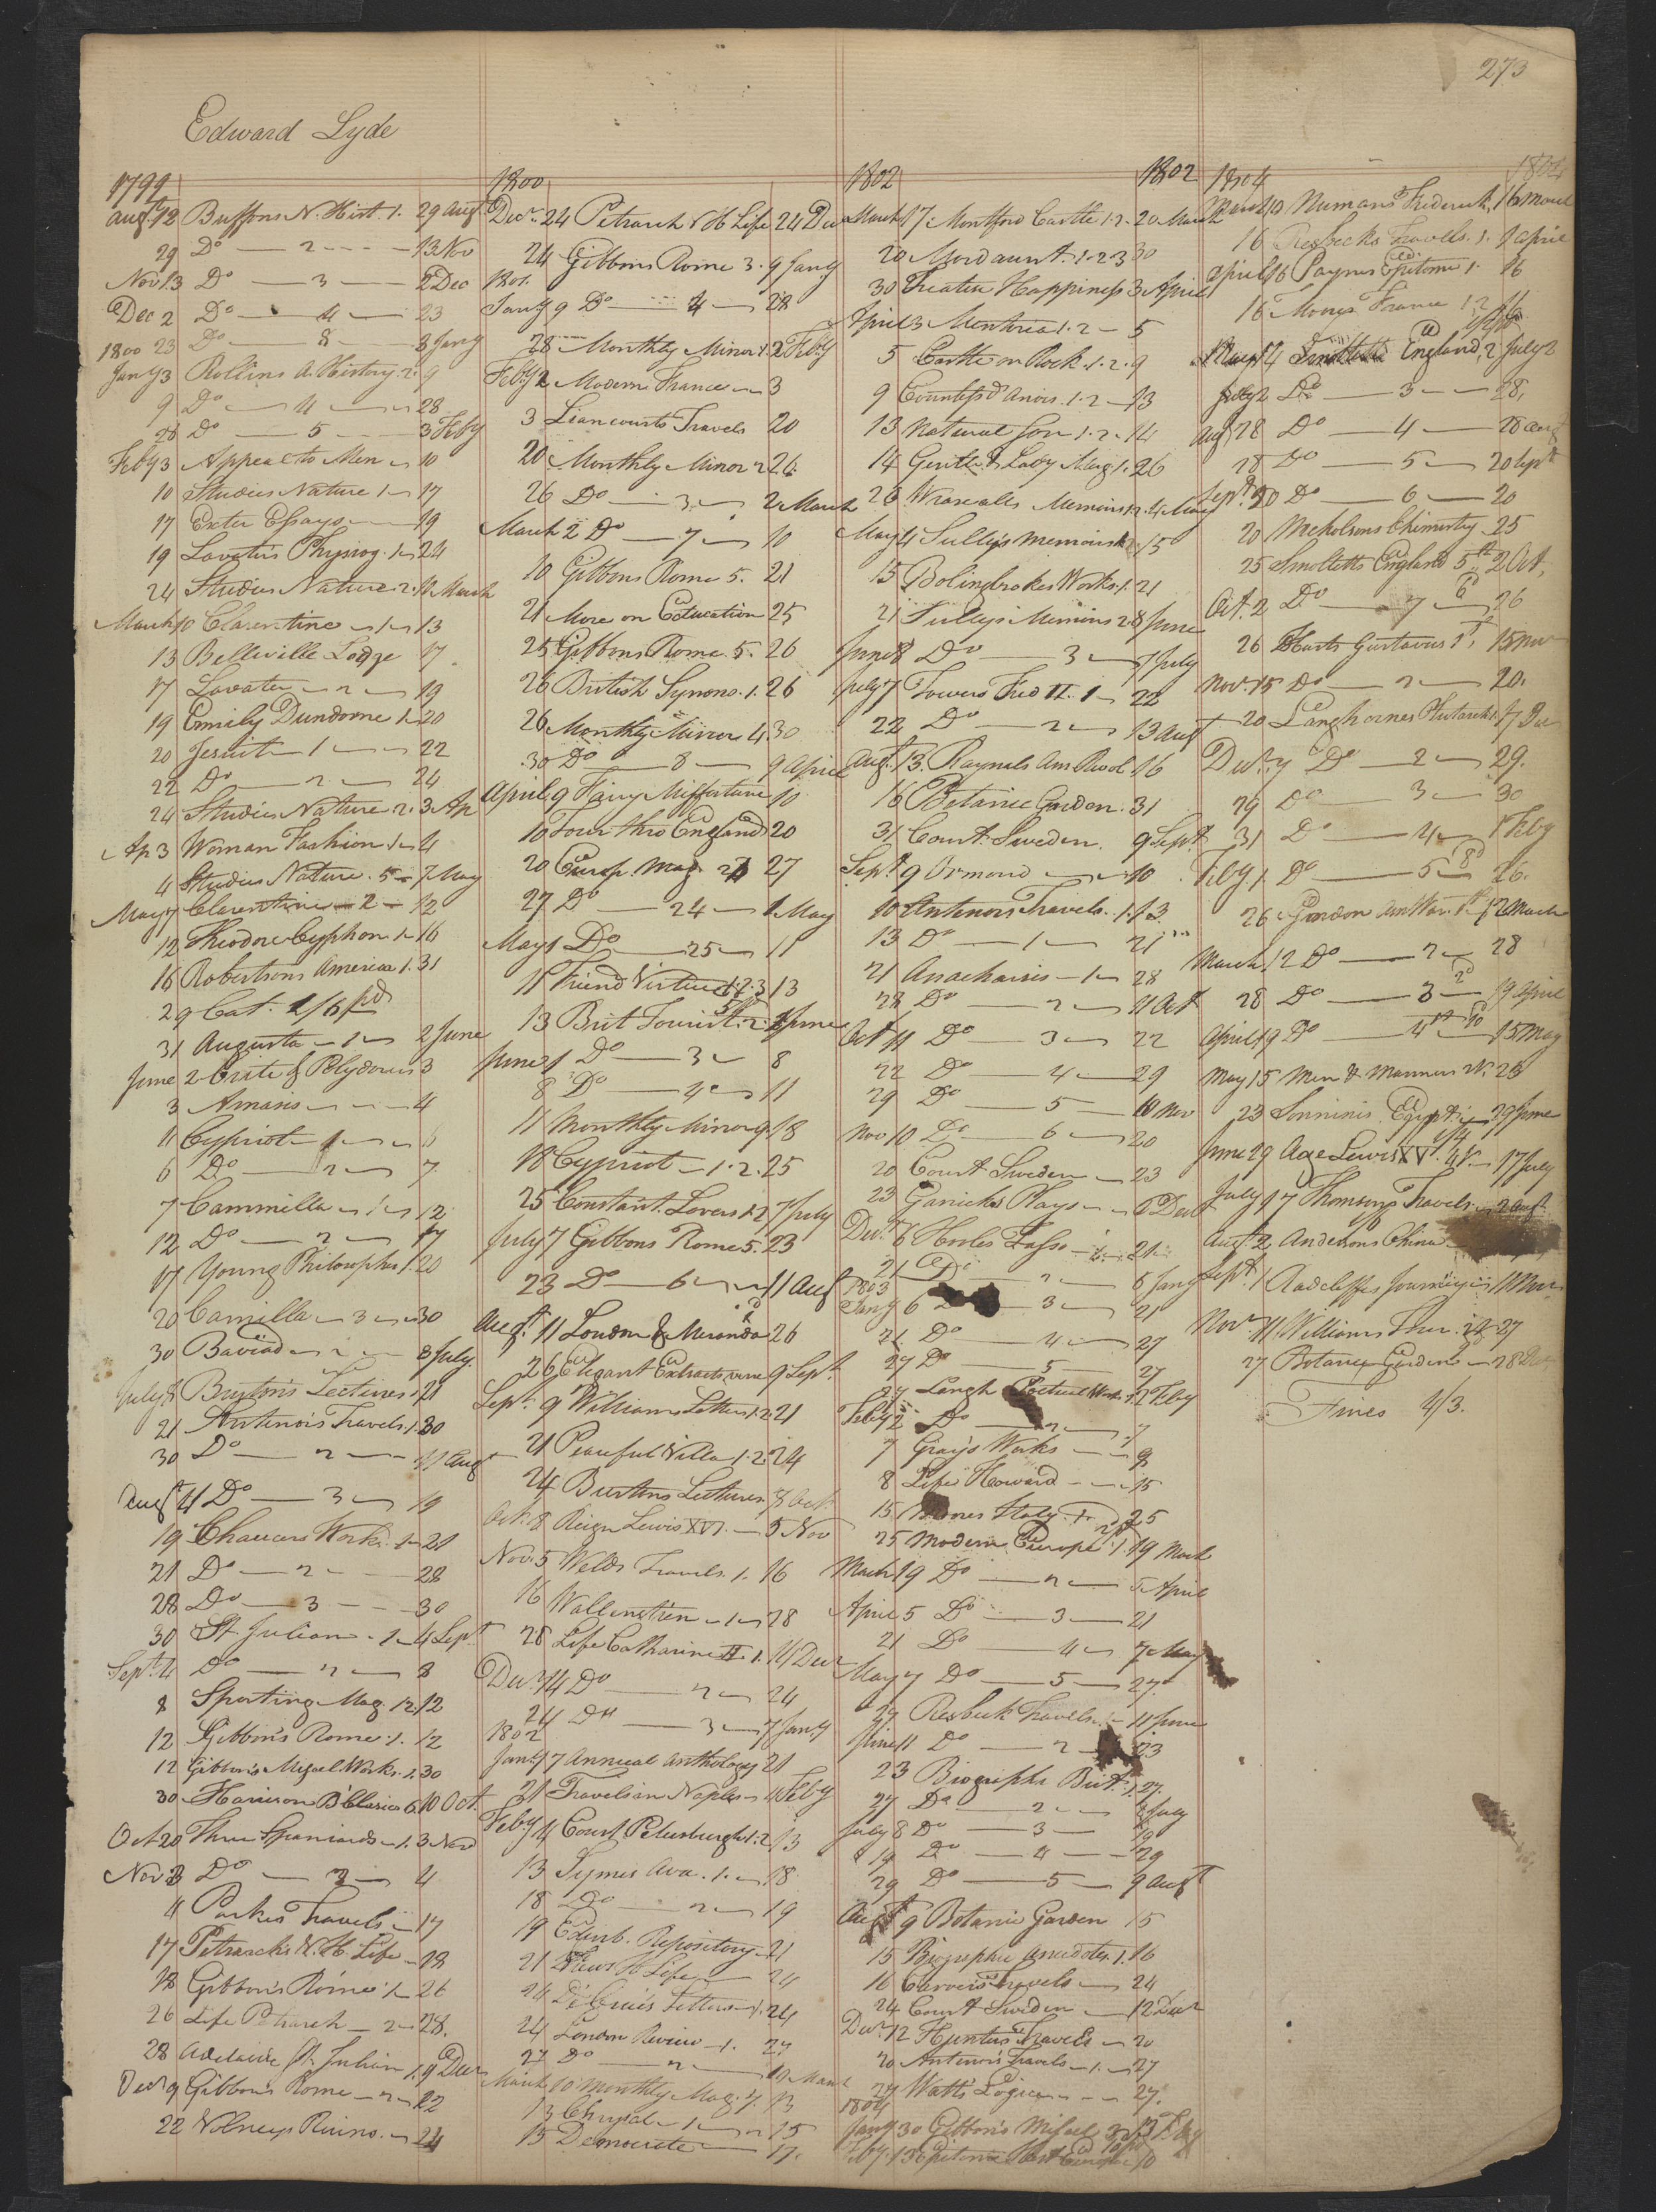 273
Edward Lyde
1799
Augt 12 Buffons N. Hist. 1. 29 Augt
29 Do — 2 — 13 Nov
Nov 13 Do — 3 — 2 Dec
Dec 2 Do — 4 — 23
23 Do — 8 — 3 Jany
1800
Jany 3 Rollins A. History. 2. 9
9 Do — 4 — 28
28 Do — 5 — 3 Feby
Feby 3 Appeal to Men — 10
10 Studies Nature 1 — 17
17 Exeter Essays — 19
19 Lavater's Physiog. 1 — 24
24 Studies Nature. 2. 10 March
March 10 Clarentine — 1 — 13
13 Belleville Lodge 17
17 Lavater — 2 — 19
19 Emily Dundorne 1 — 20
20 Jesuit — 1 — 22
22 Do — 2 — 24
24 Studies Nature. 2. 3 Ap
Ap 3 Woman Fashion 1 — 4
4 Studies Nature. 5 — 7 May
May 7 Clarentine — 2 — 12
12 Theodore Cyphon 1 — 16
16 Robertsons America 1. 31
29 Cat. 1/6 pd
31 Augusta — 1 — 2 June
June 2 Crite & Polydorus 3
3 Amasis — 4
4 Cypriot — 1 — 6
6 Do — 2 — 7
7 Cammilla — 1 — 12
12 Do — 2 — 17
17 Young Philosopher 1. 20
20 Camilla — 3 — 30
30 Baviad — 8 July
July 8 Bryton's Lectures 21
21 Antenors Travels. 1. 30
30 Do — 2 — 11 Aug
Augt 11 Do — 3 — 19
19 Chaucers Works. 1 — 21
21 Do — 2 — 28
28 Do — 3 — 30
30 St. Julian — 1 — 4 Sept
Sept 4 Do — 2 — 8
8 Sporting Mag. 12. 12
12 Gibbon's Rome. 1. 12
12 Gibbon's Miscel Works. 2. 30
30 Harrison B. Classics 6. 10 Oct.
Oct 20 Three Spaniards — 1. 3 Nov
Nov 3 Do — 2 — 4
4 Parkes Travels — 17
17 Petrarch's & H. Life — 18
18 Gibbon's Rome 1 — 26
26 Life Petrarch — 2 — 28.
28 Adelaide St. Julian 1. 9 Decr
Decr 9 Gibbons Rome — 2 — 22
22 Volneys Ruins. — 24
1800
Decr. 24 Petrarch & H Life 24 Dec
24 Gibbons Rome 3. 9 Jany
1801.
Jany 9 Do — 4 — 28
28 Monthly Mirror 1. 2 Feby
Feby 2 Modern France — 3
3 Liancourts Travels 20
20 Monthly Mirror 2 26
26 Do — 3 — 2 March
March 2 Do — 7 — 10
10 Gibbons Rome 5. 21
21 More on Education 25
25 Gibbons Rome. 5. 26
26 British Synono. 1. 26
26 Monthly Mirror 4. 30
30 Do — 8 — 9 April
April 9 Fairy Misfortune 10
10 Tour thro England 20
20 Europ. Mag. 23 27
27 Do — 24 — 1 May
May 1 Do — 25 — 11
11 Friend Virtue 1.2.3 13
13 Brit Tourist. 2. 1 June
June 1 Do — 3 — 8
8 Do — 4 — 11
11 Monthly Mirror 9. 18
18 Cypriot — 1. 2. 25
25 Constant. Lovers 1.2 7 July
July 7 Gibbons Rome 5. 23
23 Do — 6 — 11 Aug
Augt. 11 London & Miranda 26
26 Elegant Extracts, verse 9 Sept.
Sept. 9 Williams Letters 1.2 21
21 Peaceful Villa 1.2. 24
24 Burtons Lectures. 8 Oct.
Oct. 8 Reign Lewis XVI. — 5 Nov
Nov. 5 Welds Travels. 1. 16
16 Wallenstien — 1 — 28
28 Life Catharine II. 1. 14 Decr
Decr 14 Do — 2 — 24
24 Do — 3 — 7 Jany
1802
Jany 7 Annual Anthology 21
21 Travels in Naples — 4 Feby
Feby 4 Court Petersburgh 1.2 13
13 Symes Ava. 1. — 18
18 Do — 2 — 19
19 Edinb. Repository 21
21 Life — 24
24 Letters — 1. 24
24 London Review — 1. 27
27 Do — 2 — 10 March
March 10 Monthly Mag. 7. 13
13 Chrysal — 1 — 15
15 Democrate — 17.
1802 1802
March 17 Montford Castle 1.2. 20 March
20 Mordaunt. 1. 2 3 30
30 Treatise Happiness 3 April
April 3 Mentoria 1. 2 — 5
5 Castle on Rock. 1. 2. 9
9 Countess d'Anois. 1. 2 — 13
13 Natural Son 1. 2. 14
14 Gentle. & Lady Mag 1. 26
26 Wraxalls Memoirs 1.2. 4 May
May 4 Sully's Memoirs 1. 15
15 Bolingbrokes Works. 1. 21
21 Sullys Memoirs 2. 8 June
June 8 Do — 3 — 7 July
July 7 Towers Fred II. 1 — 22
22 Do — 2 — 13 Augt
Augt. 13. Raynals Am Revol. 16
16 Botanic Garden. 31
31 Court Sweden. 9 Sept.
Sept 9 Ormond — 10
10 Antenors Travels. 1. 13.
13 Do — 1 — 21
21 Anacharsis — 1 — 28
28 Do — 2 — 11 Oct
Oct 11 Do — 3 — 22
22 Do — 4 — 29
29 Do — 5 — 10 Nov
Nov 10 Do — 6 — 20
20 Court Sweden — 23
23 Garricks Plays — 6 Decr
Decr. 6 Hooles Tasso — 1 — 21.
21 Do — 2 — 6 Jany
1803
Jany 6 Do — 3 — 21
21 Do — 4 — 27
27 Do — 5 — 27
27 Langh Poetical Works 1. 2 Feby
Feby 2 Do — 2 — 7
7 Gray's Works — 8
8 Life Howard — 15
15 Italy. 1. 25
25 Modern Europe. 1. 19 March
March 19 Do — 2 — 5 April
April 5 Do — 3 — 21
21 Do — 4 — 7 May
May 7 Do — 5 — 27.
27 Resbeck Travels. 1 — 11 June
June 11 Do — 2 — 23
23 Biographa Brit. 1. 27.
27 Do — 2 — 8 July
July 8 Do — 3 — 19
19 Do — 4 — 29
29 Do — 5 — 9 Augt
Augt 9 Botanic Garden 15
15 Biographic Anecdotes. 1. 16
16 Carvers Travels — 24
24 Court Sweden — 12 Decr
Decr. 12 Hunters Travels — 20
20 Antenors Travels — 1. — 27
27 Watts Logic — 27.
1804
Jany 30 Gibbon's Miscel 13 Feby
Feby. 13 Epitome Hist Europe 10
1804 1804
March 10 Numans Frederick, 16 March
16 Resbecks Travells. 1. 9 April
April 16 Paynes Epitome 1. 16
16 Moores France 1. 2 14
May 14 Smolletts England, 2 July 2
July 2 Do — 3 — 28,
Augt 28 Do — 4 — 28 Augt
28 Do — 5 — 20 Sept
Sept. 20 Do — 6 — 20
20 Nicholsons Chimistry 25
25 Smolletts England 5th 2 Oct,
Oct. 2 Do — 7 — 26
26 Harts Gustavus 1st, 15 Nov
Nov. 15 Do — 2 — 20.
20 Langhornes Plutarch 1. 7 Dec
Decr. 7 Do — 2 — 29.
29 Do — 3 — 30
31 Do — 4 — 1 Feby
Feby 1. Do — 5 — 26.
26 Gordon Am War. 1st 12 March
March 12 Do — 2 — 28
28 Do — 3 — 19 April
April 19 Do — 4th — 15 May
May 15 Men & Manners 23
23 Sonninis Egypt — 29 June
June 29 Age Lewis XV — 17 July
July 17 Thomson's Travels — 2 Augt.
Augt 2 Andersons China
Sept. 1 Radcliffes Journey — 11 Nov
Novr 11 Williams 27
27 Botanic Gardens — 28 Decr
Fines 4/3.